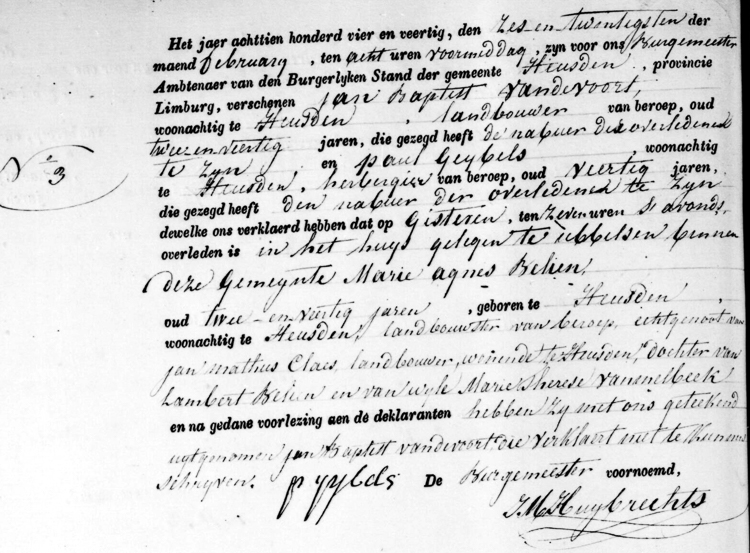 Het jaer achttien honderd vier en veertig, den zes-en-twentigsten der
maend february, ten acht uren voormiddag, zyn voor ons Burgemeester
Ambtenaer van den Burgerlyken Stand der gemeente Heusden, provincie
Limburg, verschenen jan Baptist vandevoort,
woonachtig te Heusden, landbouwer van beroep, oud
twee en viertig jaren, die gezegd heeft de nabuer der overledene
te zyn en paul Geybels, woonachtig
N° 3
te Heusden, herbergier van beroep, oud veertig jaren,
die gezegd heeft den nabuer der overledene te zyn
dewelke ons verklaerd hebben dat op Gisteren, ten zeven uren s'avonds,
overleden is in het huys gelegen te ubbelsen binnen
deze Gemeynte Marie agnes Belien,
oud twee-en-viertig jaren, geboren te Heusden,
woonachtig te Heusden, landbouwster van beroep, echtgenoot van
jan mathies Claes, landbouwer, wonende te Heusden, dochter van
Lambert Belien en van wyle Marie Therese Vansnelbeek
en na gedane voorlezing aen de deklaranten hebben zy met ons geteekend
uytgenomen jan Baptist vandevoort, die verklaert niet te kunnen
schryven. De Burgemeester voornoemd,
J M Huybrechts